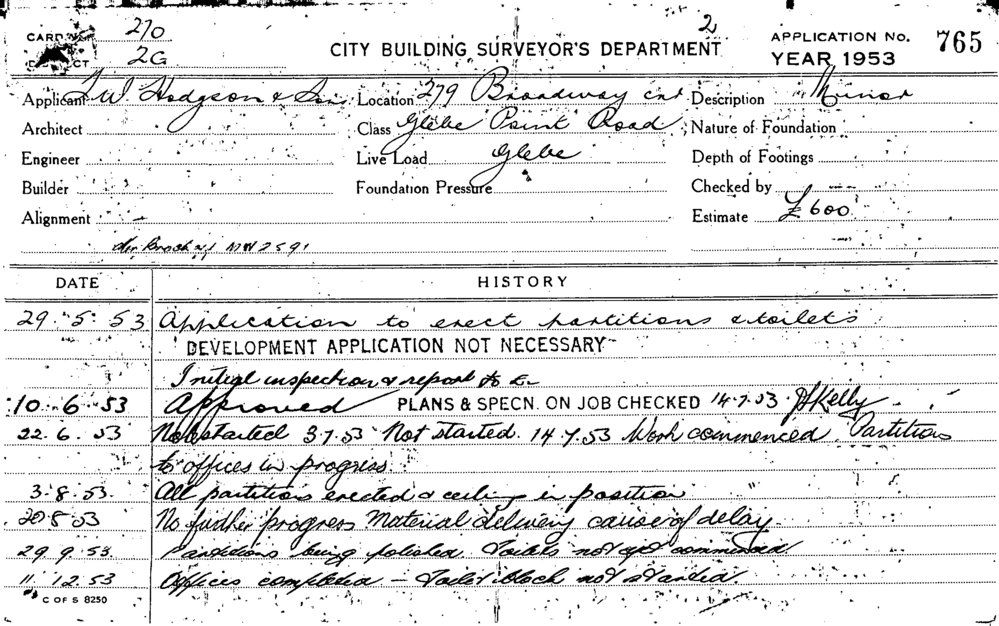 CARD No. 270 2
CITY BUILDING SURVEYOR'S DEPARTMENT
APPLICATION No. 765
YEAR 1953
DISTRICT 2G
Applicant F.W. Hodgson & Son Location 279 Broadway cnr Description Minor
Architect Class Glebe Point Road Nature of Foundation
Engineer Live Load Glebe Depth of Footings
Builder Foundation Pressure Checked by
Alignment Estimate £600
MW 2591
DATE HISTORY
29.5.53 Application to erect partitions & toilets
DEVELOPMENT APPLICATION NOT NECESSARY
Initial inspection & report to
10.6.53 Approved PLANS & SPECN. ON JOB CHECKED 14.7.53 Kelly
22.6.53 Not started 3.7.53 Not started. 14.7.53 Work commenced. Partitions
to offices in progress
3.8.53. All partitions erected & ceiling in position
20.8.53 No further progress Material delivery cause of delay
29.9.53 Partitions being polished. Toilets not yet commenced
11.12.53 Offices completed – Toilet block not started
C OF S 8250